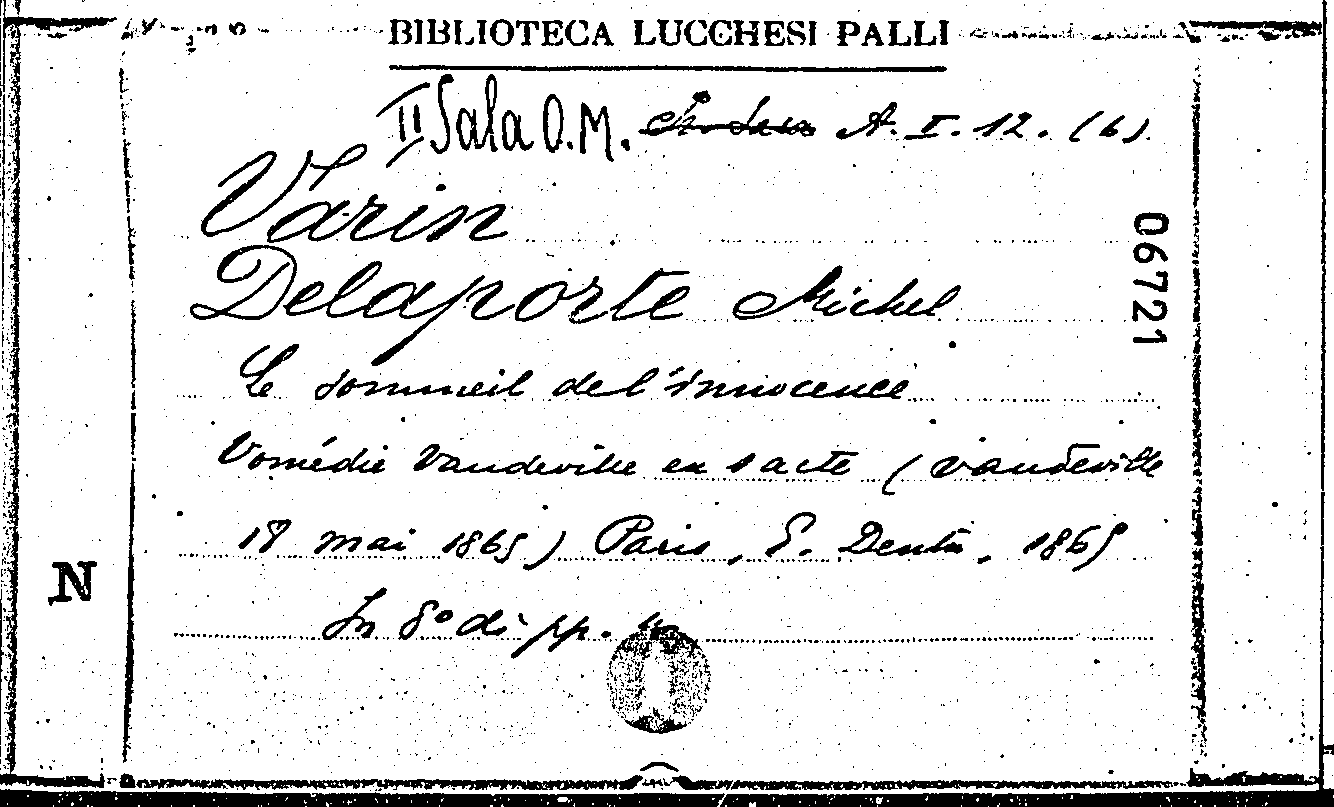 BIBLIOTECA LUCCHESI PALLI
II Sala O.M. A. I. 12. (6)
Varin
Delaporte Michel
06721
Le sommeil de l'innocence
Comédie Vaudeville en 1 acte (Vaudeville
18 mai 1865) Paris, E. Dentu, 1865
N
In 8° di pp.